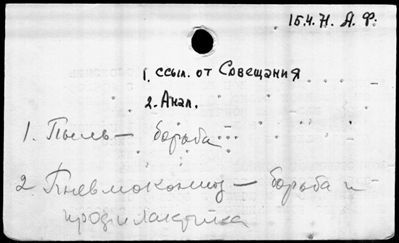 15.4.Н. А. Ф.
1. ссыл. от Совещания
2. Анал.
1. Пыль — борьба
2 Пневмокониоз — борьба и
профилактика